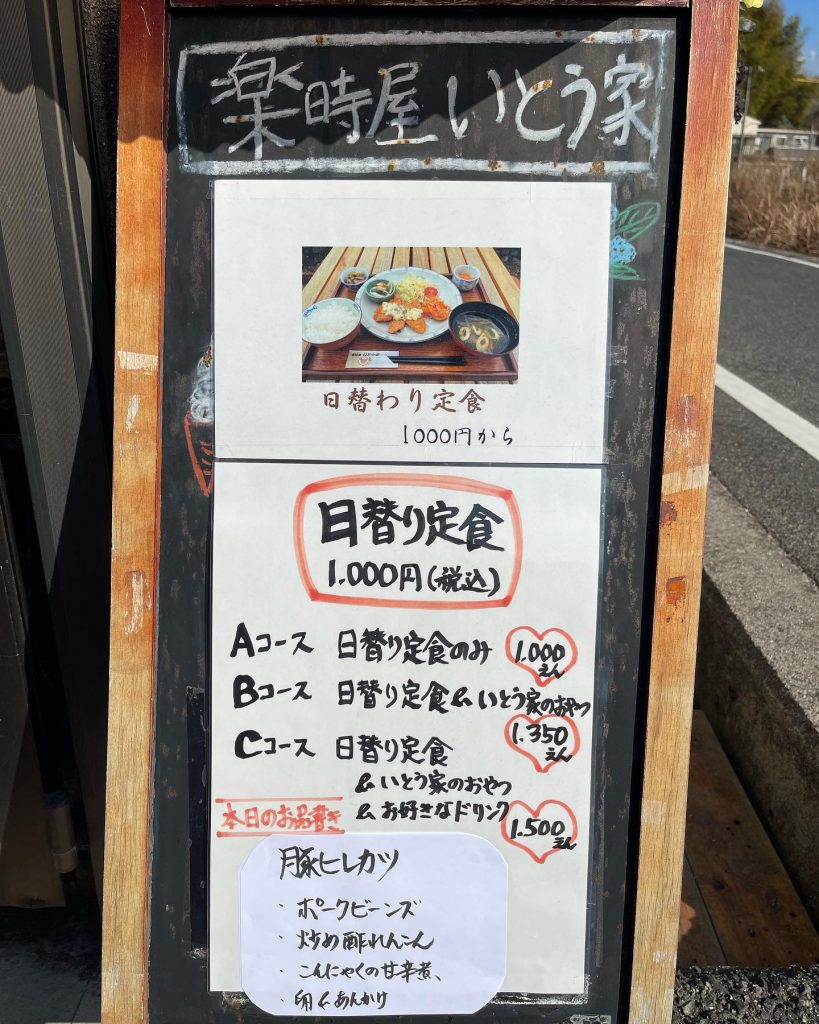 楽時屋いとう家
日替わり定食
1000円から
日替り定食
1.000円(税込)
Aコース 日替り定食のみ 1.000えん
Bコース 日替り定食&いとう家のおやつ
1.350えん
Cコース 日替り定食
&いとう家のおやつ
&お好きなドリンク
1.500えん
本日のお品書き
豚ヒレカツ
・ポークビーンズ
・炒め酢れんこん
・こんにゃくの甘辛煮、
・卵&あんかけ